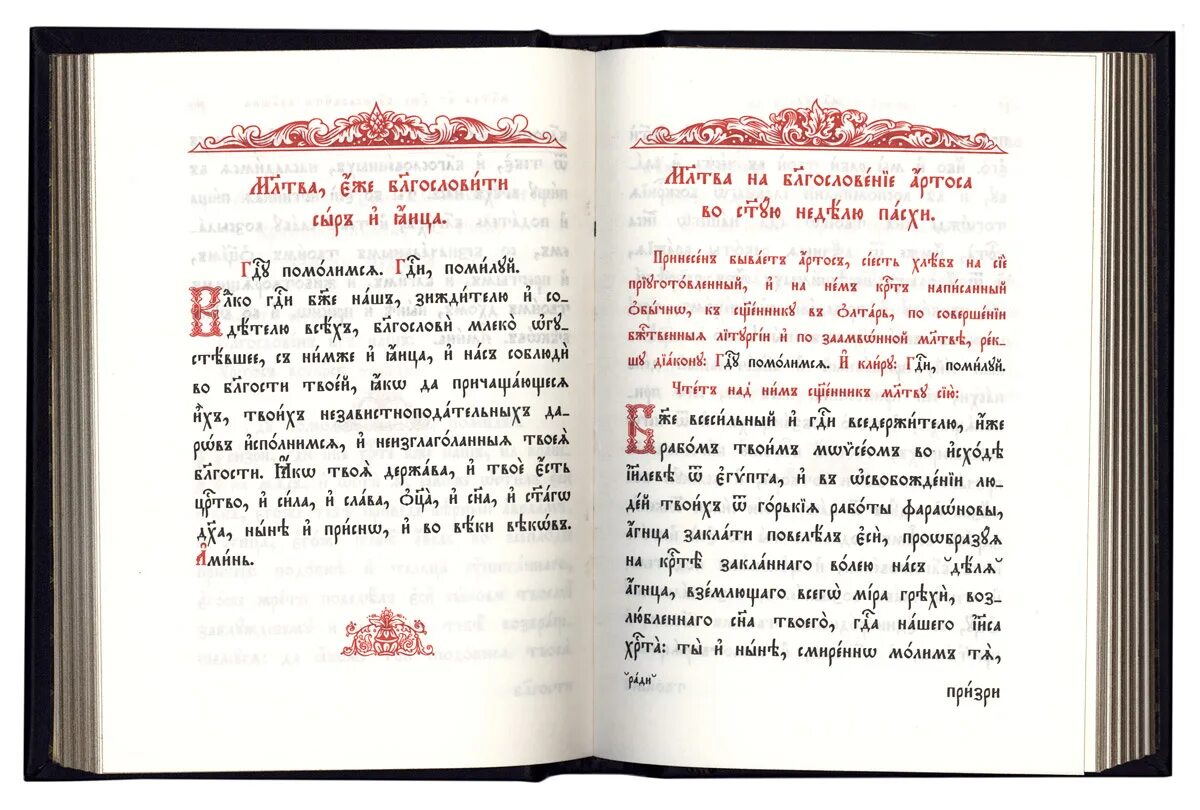 Мл҃тва, є҆́же бл҃гослови́ти
сы́ръ и҆ ꙗ҆́ица.
Гдⷭ҇ꙋ помо́лимсѧ. Гдⷭ҇и, поми́лꙋй.
Влⷣко гдⷭ҇и бж҃е на́шъ, зижди́телю и҆ со-
дѣ́телю всѣ́хъ, бл҃гословѝ млеко̀ ѡ҆гꙋ-
стѣ́вшее, съ ни́мже и҆ ꙗ҆́ица, и҆ на́съ соблюдѝ
во бл҃гости твое́й, ꙗ҆́кѡ да причаща́ющесѧ
и҆́хъ, твои́хъ незави́стноподателныхъ да-
рѡ́въ и҆спо́лнимсѧ, и҆ неизглаго́ланныѧ твоеѧ̀
бл҃гости. Ꙗ҆́кѡ твоѧ̀ держа́ва, и҆ твоѐ є҆́сть
црⷭ҇тво, и҆ си́ла, и҆ сла́ва, ѻ҆ц҃а̀, и҆ сн҃а, и҆ ст҃а́гѡ
дх҃а, ны́нѣ и҆ при́снѡ, и҆ во вѣ́ки вѣкѡ́въ.
А҆ми́нь.
Мл҃тва на бл҃гослове́нїе а҆́ртоса
во ст҃ꙋ́ю недѣ́лю па́схи.
Принесе́нъ быва́етъ а҆́ртосъ, сїе́сть хлѣ́въ на сїѐ
прїꙋгото́вленный, и҆ на не́мъ крⷭ҇тъ напи́санный
ѻ҆бы́чнѡ, къ сщ҃е́ннику въ ѻ҆лта́рь, по соверше́нїи
бжⷭ҇твенныѧ лїтꙋргі́и и҆ по заамво́нной мл҃твѣ, ре́к-
шꙋ дїа́конꙋ: Гдⷭ҇ꙋ помо́лимсѧ. И҆ кли́рꙋ: Гдⷭ҇и, поми́лꙋй.
Чте́тъ над ни́мъ сщ҃е́нникъ мл҃твꙋ сїю̀:
Бж҃е всеси́льный и҆ гдⷭ҇и вседержи́телю, и҆́же
рабо́мъ твои́мъ мѡѷсе́омъ во и҆схо́дѣ
і҆и҃левѣ ѿ є҆гѵ́пта, и҆ въ ѡ҆свобожде́нїи лю-
де́й твои́хъ ѿ го́рькїѧ рабо́ты фараѡ́новы,
а҆́гнца закла́ти повелѣ́лъ є҆сѝ, проѡбразꙋ́ѧ
на крⷭ҇тѣ̀ закла́ннаго во́лею на́съ ꙾дѣ́лѧ꙾
а҆́гнца, взе́млющаго всегѡ̀ мі́ра грѣхѝ, воз-
лю́бленнаго сн҃а твоего̀, гдⷭ҇а на́шего і҆и҃са
хрⷭ҇та̀: ты̀ и҆ ны́нѣ, смире́ннѡ мо́лимъ тѧ̀,
꙾ра́ди꙾
при́зри